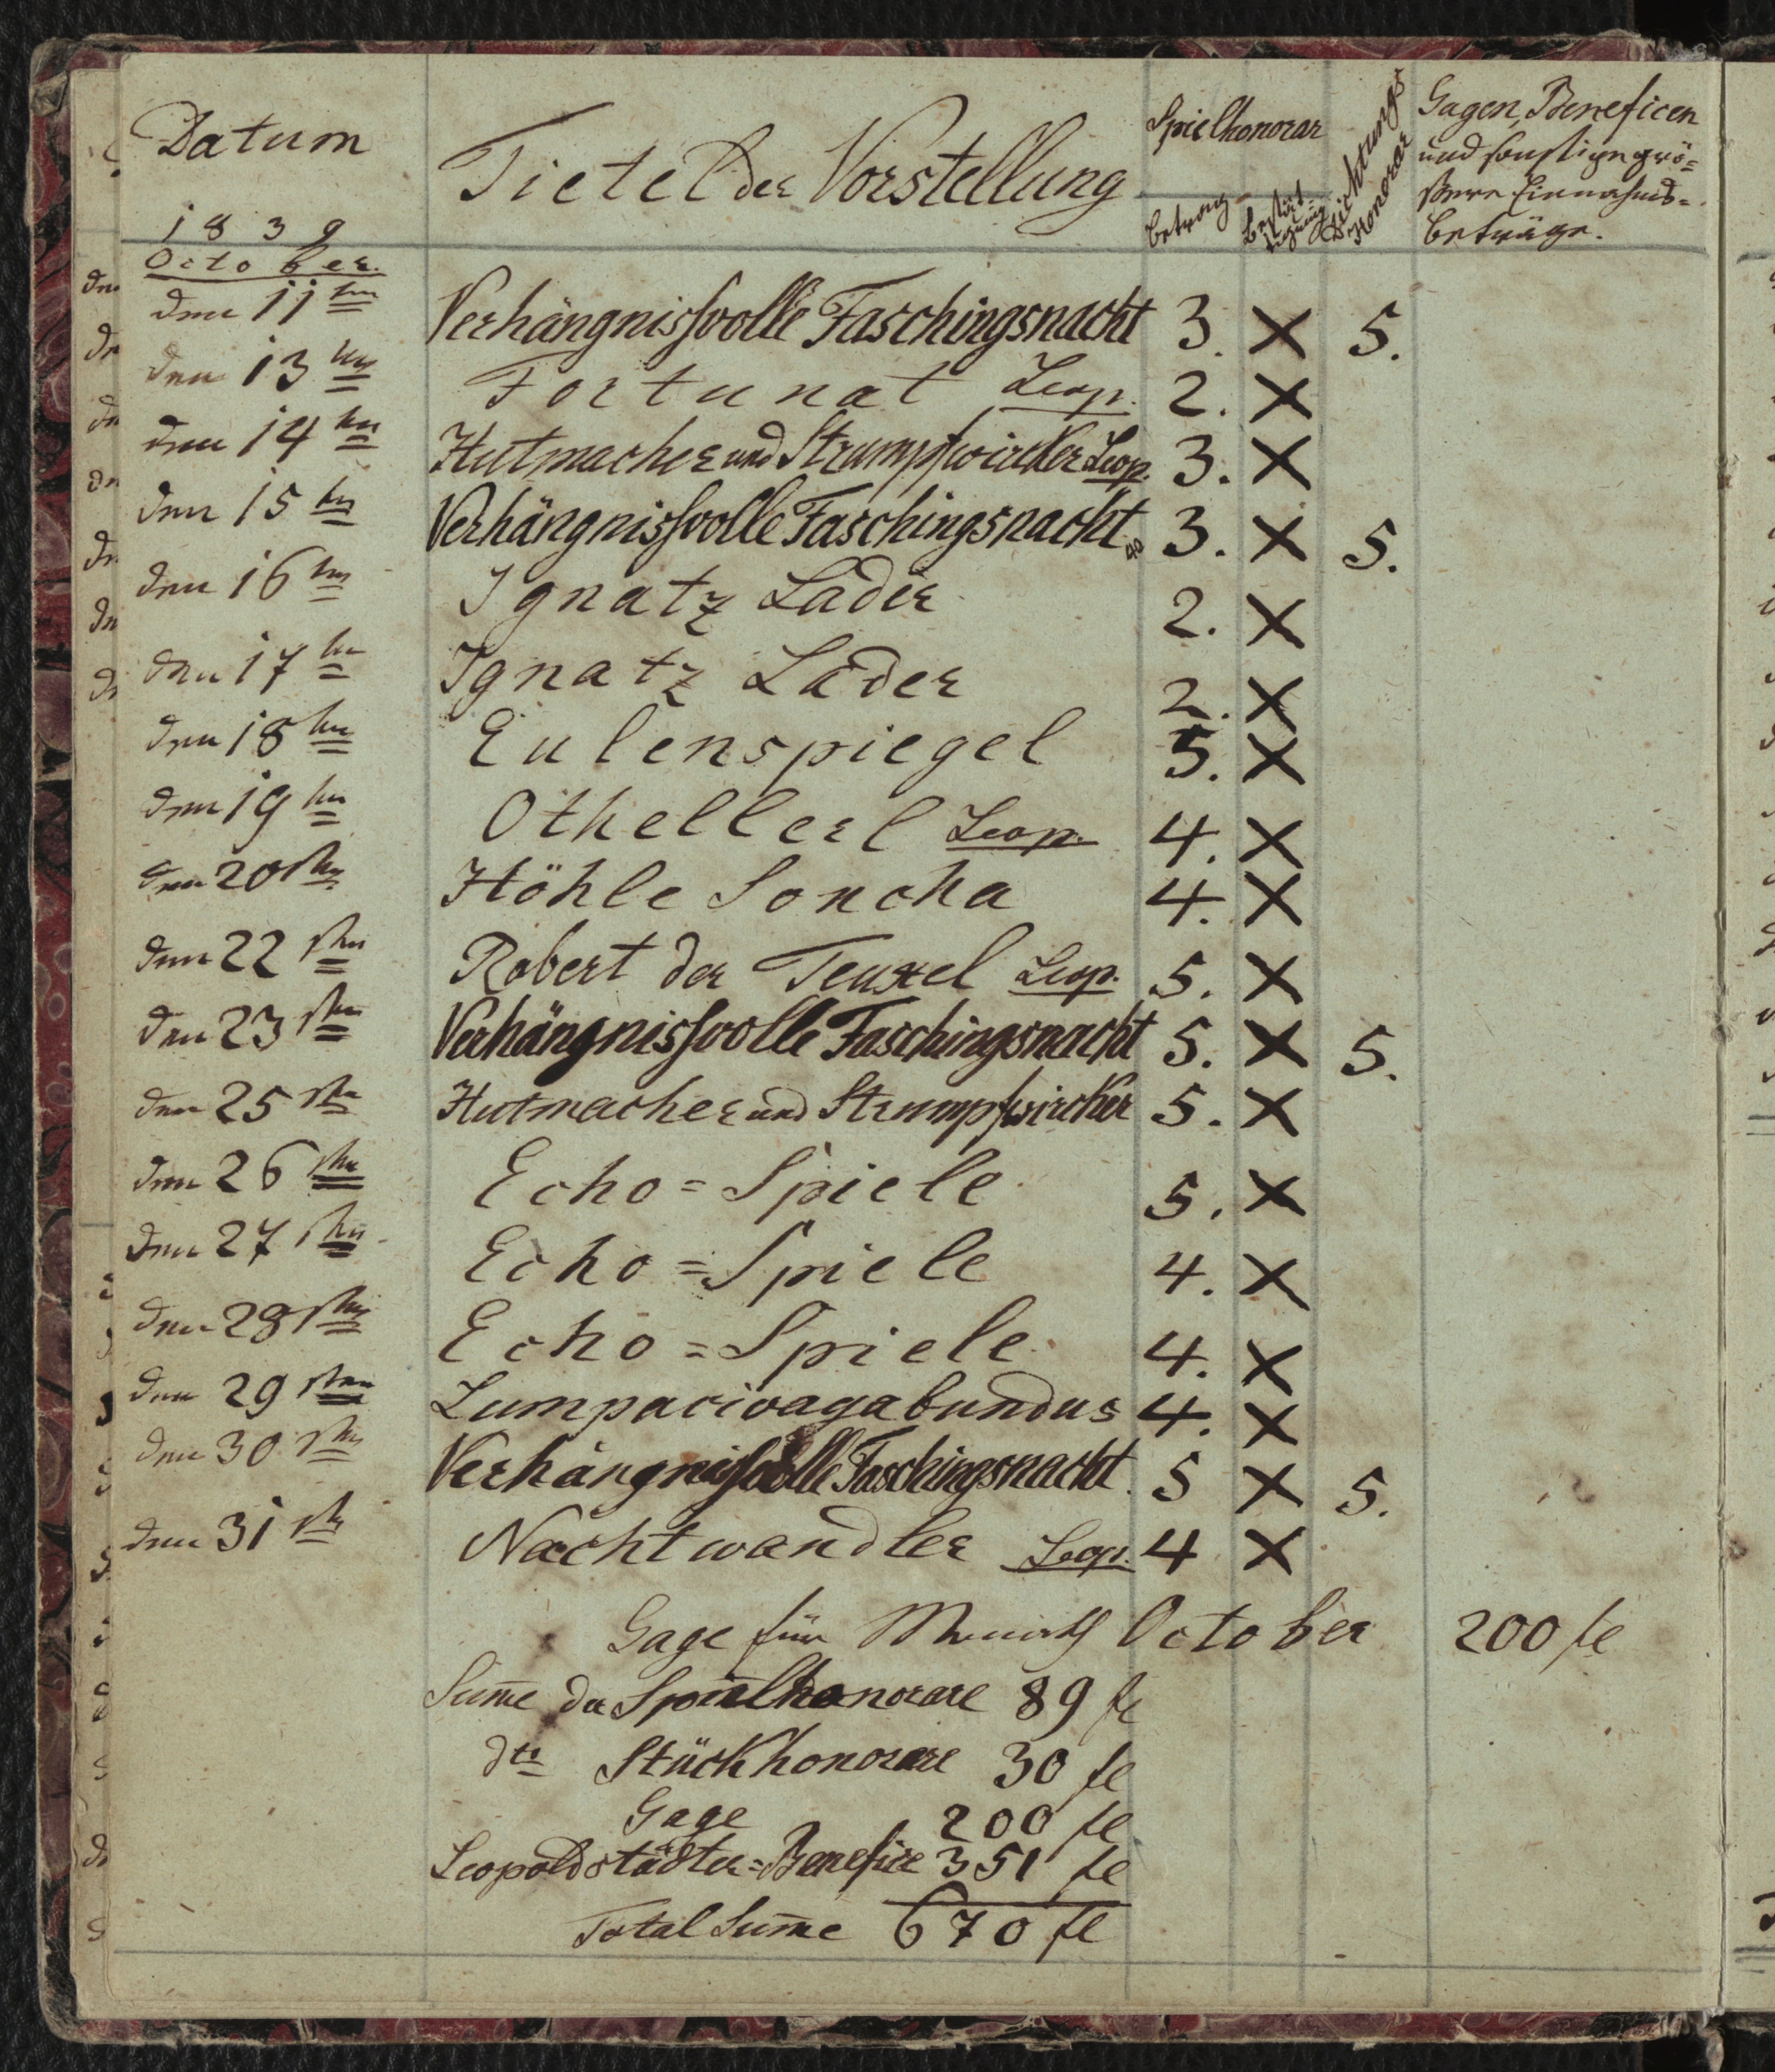 Datum
Tietel der Vorstellung
Spielhonorar
Betrag
Bestät-
tigung
Dichtungs
Honorar
Gagen, Beneficen
und sonstige grö=
ßere Einnahms=
Beträge.
1839
October.
den 11ten Verhängnissvolle Faschingsnacht 3. X 5.
den 13ten Fortunat Leop. 2. X
den 14ten Hutmacher und Strumpfwircker Leop. 3. X
den 15ten Verhängnissvolle Faschingsnacht 40 3. X 5.
den 16ten Ignatz Lader 2. X
den 17ten Ignatz Lader 2. X
den 18ten Eulenspiegel 5. X
den 19ten Othellerl Leop. 4. X
den 20sten Höhle Soncha 4. X
den 22sten Robert der Teuxel Leop. 5. X
den 23sten Verhängnissvolle Faschingsnacht 5. X 5.
den 25sten Hutmacher und Strumpfwircker 5. X
den 26sten Echo=Spiele 5. X
den 27sten Echo=Spiele 4. X
den 28sten Echo=Spiele 4. X
den 29sten Lumpacivagabundus 4. X
den 30sten Verhängnissvolle Faschingsnacht 5 X 5.
den 31sten Nachtwandler Leop. 4 X
Gage für Monath October 200 fl
Sum̄e der Spielhonorare 89 fl
dto Stückhonorare 30 fl
Gage 200 fl
Leopoldstädter=Benefice 351 fl
Total Sum̄e 670 fl